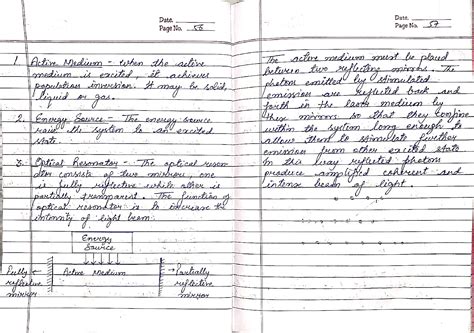 Date.
Page No. 56
1. Active Medium - when the active
medium is excited, it achieves
population inversion. It may be solid,
liquid or gas.
2. Energy Source - The energy source
raise the system to an excited
state.
3. Optical Resonator - The optical reson
ator consists of two mirror, one
is fully reflective while other is
partially transparent. The function of
optical resonator is to increase the
intensity of light beam.
Energy
Source
Fully
reflective
mirror
Active Medium
Partially
reflective
mirror
Date.
Page No. 57
The active medium must be placed
between two reflecting mirrors. The
photon emitted by stimulated
emission are reflected back and
forth in the laser medium by
these mirrors so that they confine
within the system long enough to
allow them to stimulate further
emission from other excited state
In this way reflected photon
produce amplified coherent and
intense beam of light.